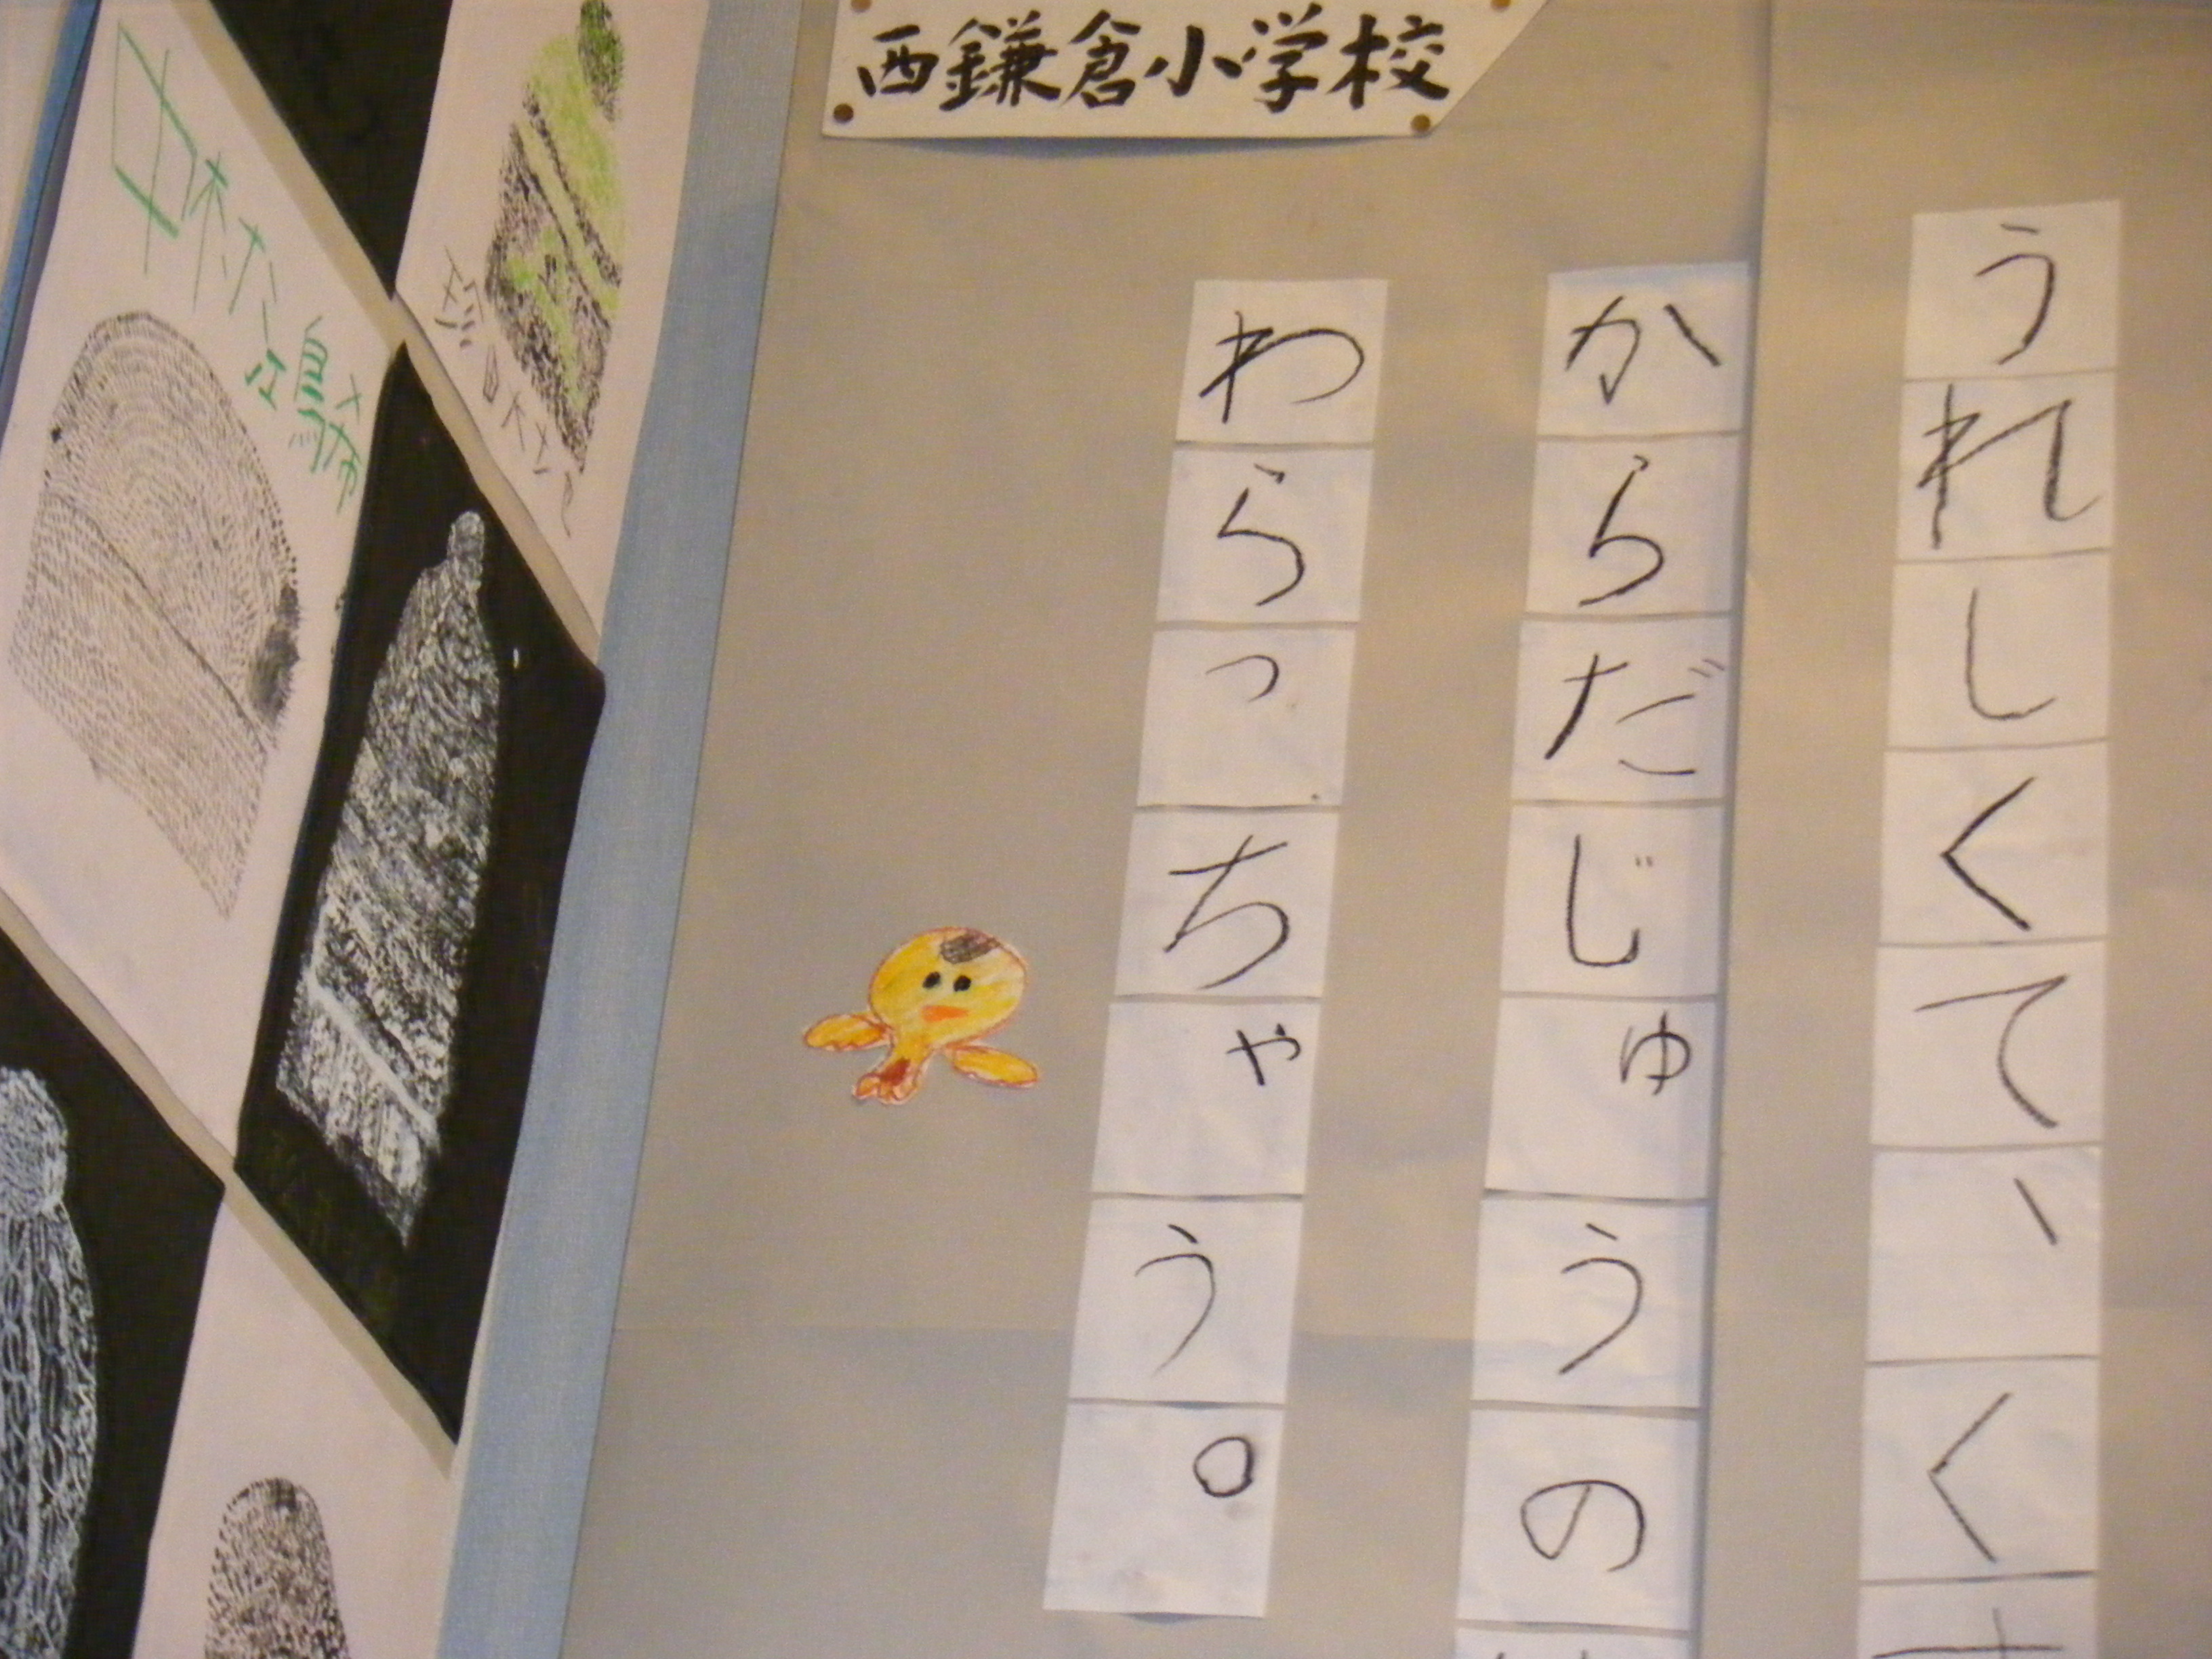 西鎌倉小学校
うれしくて、く
からだじゅうの
わらっちゃう。